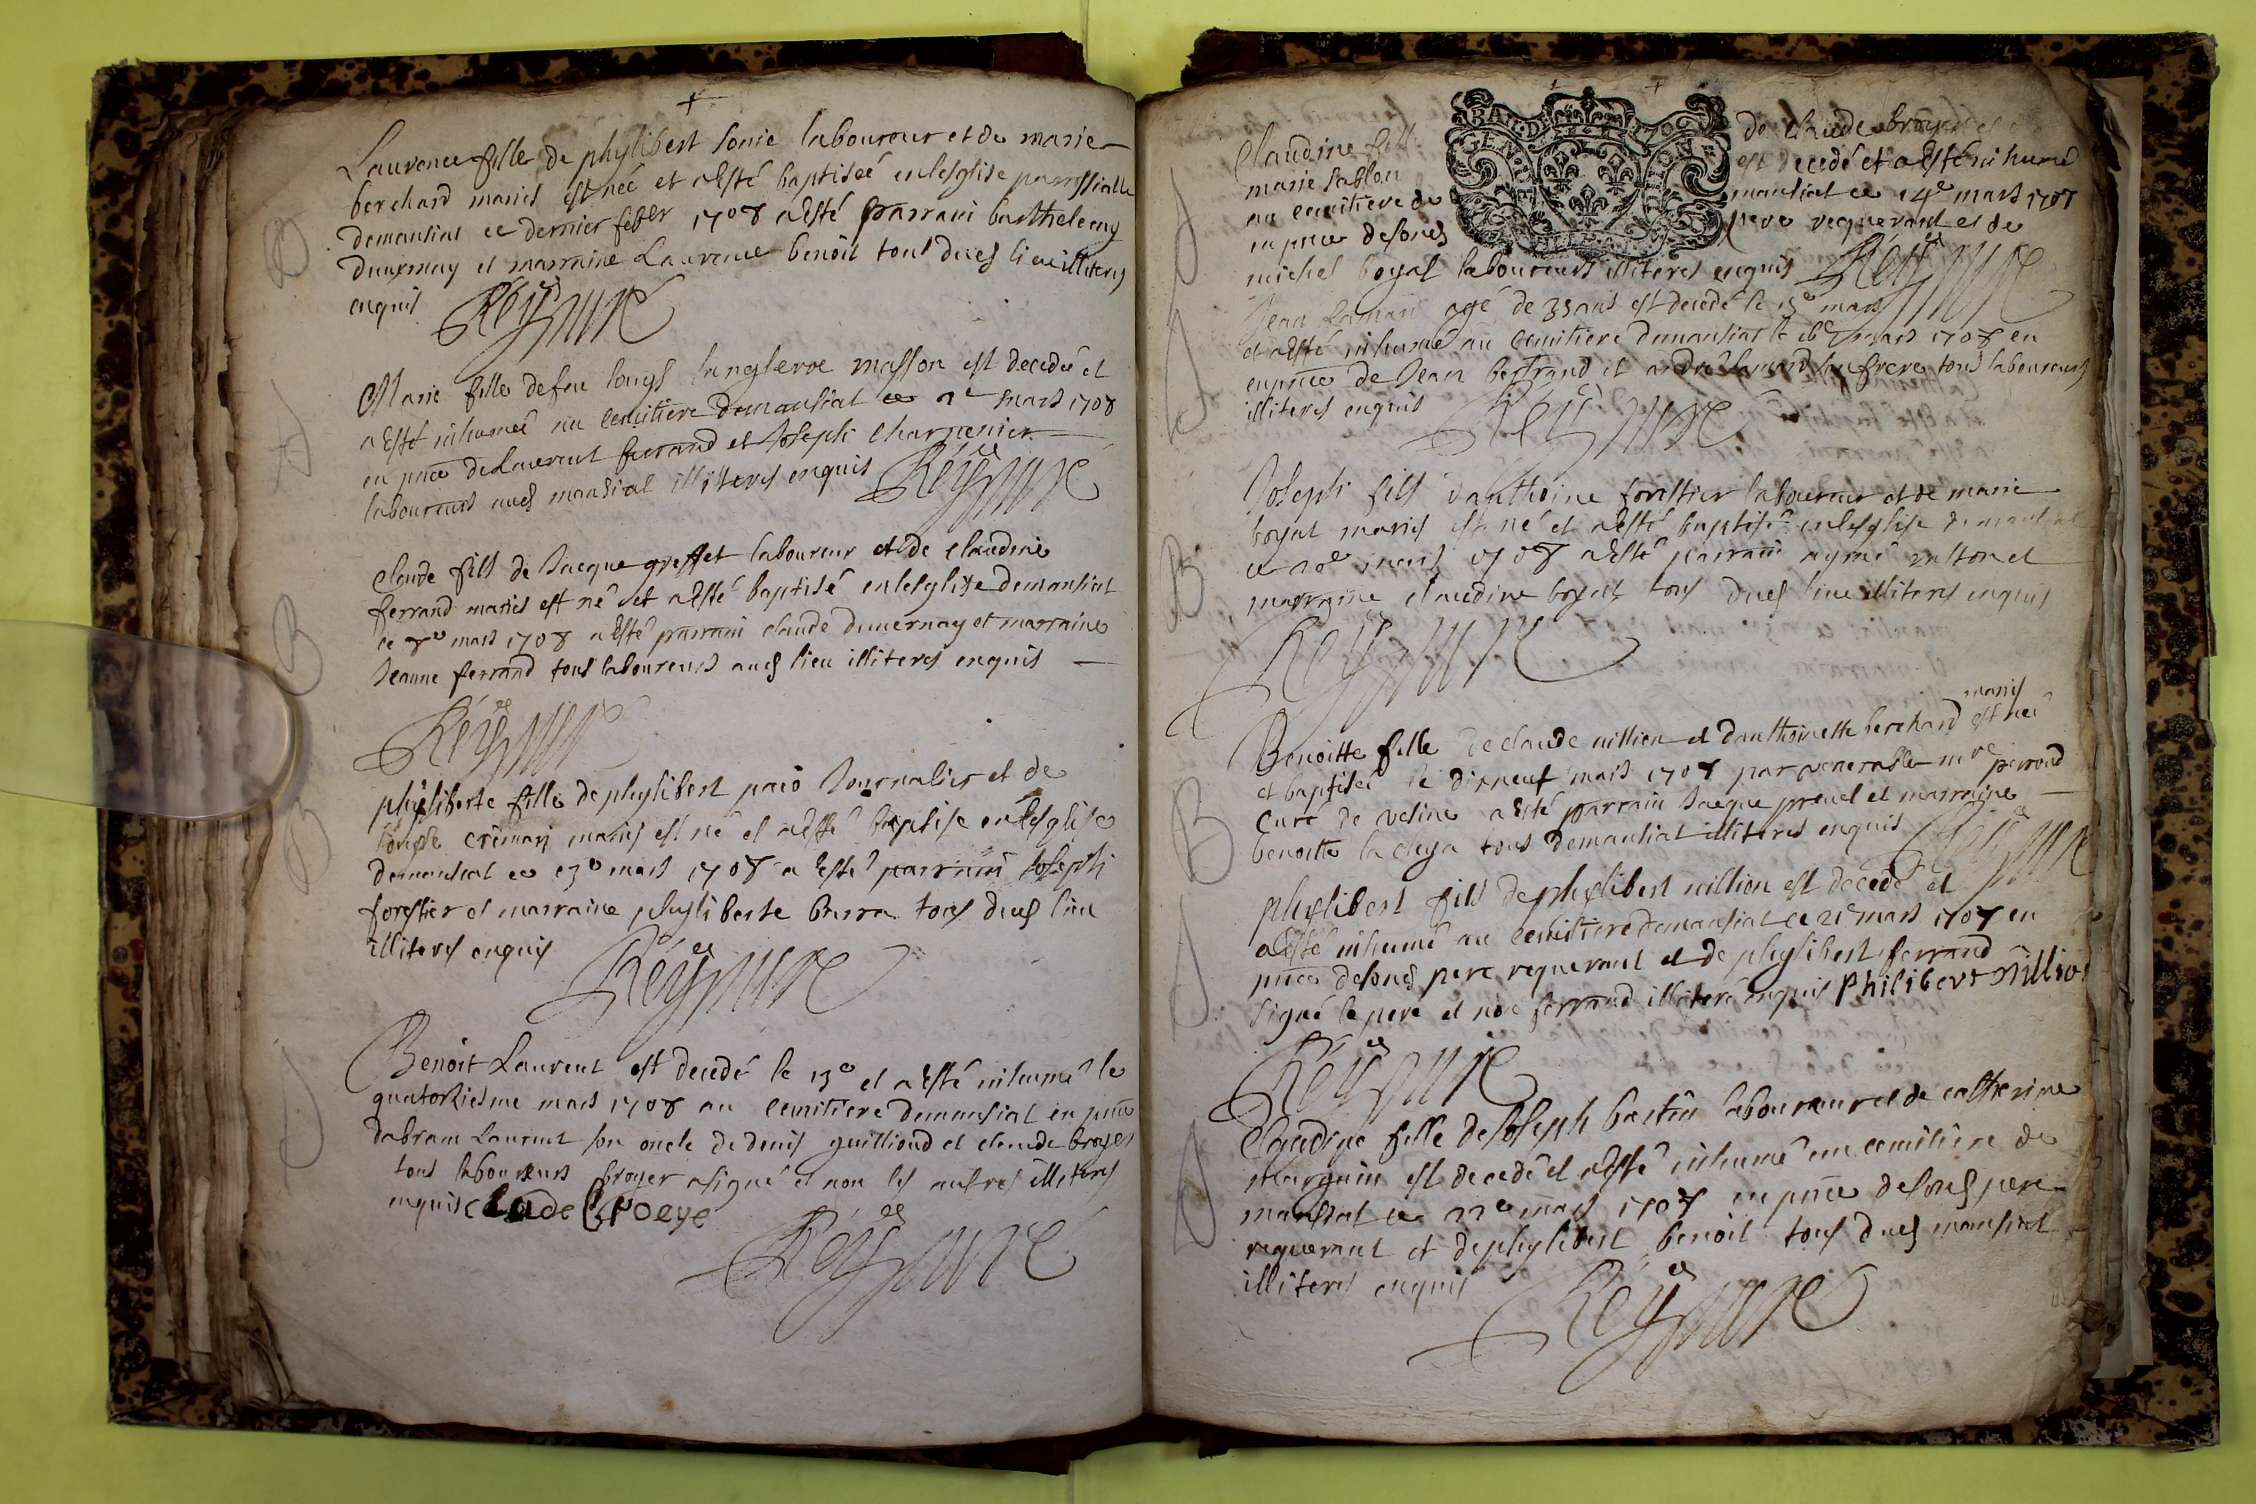 Laurence fille de phylibert sonie laboureur et de marie
berchard mariés est née et a esté baptiseé en lesglise parrossialle
demansiat ce dernier feber 1708 a esté parrain barthelemy
duuernay et marraine Laurence benoit tous dud lieu illiteres
enquis Réÿ curé
Marie fille de feu louys langleroe masson est decedeé et
a esté inhumeé au cemitiere demansiat ce 2e mars 1708
en pnce de Laurent ferrand et Joseph charpenier
laboureurs aud mansiat illiteres enquis Réÿ curé
claude fils de Jacque greffet laboureur et de claudine
ferrand mariés est né et a esté baptisé en lesglise demansiat
ce 8e mars 1708 a esté parrain claude duuernay et marraine
Jeanne ferrand tous laboureurs aud lieu illiteres enquis
Réÿ curé
phyliberte fille de phylibert Journalier et de
mariés est né et a esté baptise en lesglise
demansiat ce 13e mars 1708 a esté parrain Joseph
forestier et marraine phyliberte barra tous dud lieu
illiteres enquis Réÿ curé
Benoit Laurent est decedé le 13e et a esté inhumé le
quatorziesme mars 1708 au cemitiere demansiat en pnce
dabram Laurent son oncle de denis guilliond et claude broyer
tous laboureurs broyer a signé et non les autres illiteres
enquis clade broeye Réÿ curé
GEN DE BAR DE 1706
Claudine fill de claude broyer et
marie sablon est decedé et a esté inhumé
au cemitiere de mansiat ce 14e mars 1708
en pnce de sond pere requerant et de
michel boyat laboureurs illiteres enquis Réÿ curé
Jean Lamard agé de 35 ans est decedé le 15e mars
et a esté inhumé au cemitiere demansiat le 16e mars 1708 en
en pnce de Jean bertrand et andré lamard son frere tous laboureurs
illiteres enquis Réÿ curé
Joseph fils danthoine forestier laboureur et de marie
boyat mariés est né et a esté baptisé en lesglise demansiat
ce 18e mars 1708 a esté parrain aymé et
marraine claudine boyat tous dud lieu illiteres enquis
Réÿ curé
mariés
Benoitte fille de claude million et danthoinette berchard est neé
et baptiseé le dixneuf mars 1708 par venerable mre perroud
curé de vesine a esté parrain Jacque preuel et marraine
benoitte la cleya tous demansiat illiteres enquis Réÿ curé
phylibert fils de phylibert million est decedé et
a esté inhumé au cemitiere demansiat ce 21e mars 1708 en
pnce de sond pere requerant et de phylibert ferrand
signé le pere et non ferrand illiteré enquis Philibert Million
Réÿ curé
Claudine fille de Joseph bastin laboureur et de catherine
marguin est decedé et a esté inhumé au cemitiere de
mansiat ce 22e mars 1708 en pnce de sond pere
requerant et de phylibert benoit tous dud mansiat
illiteres enquis Réÿ curé